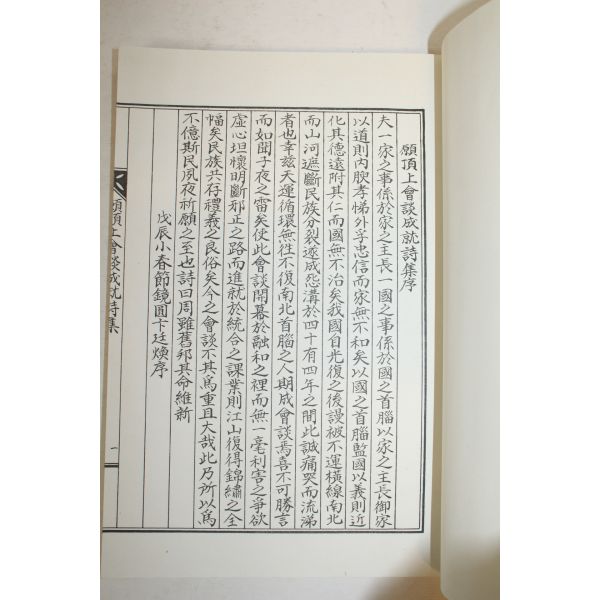 願頂上會談成就詩集序
夫一家之事係於家之主長一國之事係於國之首腦以家之主長御家
以道則內腴孝悌外孚忠信而家無不和矣以國之首腦監國以義則近
化其德遠附其仁而國無不治矣我國自光復之後謾被不運橫線南北
而山河遮斷民族分裂遂成怨溝於四十有四年之間此誠痛哭而流涕
者也幸玆天運循環無往不復南北首腦之人期成會談焉喜不可勝言
而如聞子夜之雷矣使此會談開幕於融和之裡而無一毫利害之爭欲
虛心坦懷明斷邪正之路而進就於統合之課業則江山復得錦繡之全
幅矣民族共存禮義之良俗矣今之會談不其爲重且大哉此乃所以爲
不億斯民夙夜祈願之至也詩曰周雖舊邦其命維新
戊辰小春節鏡圓卞廷煥序
願頂上會談成就詩集
一